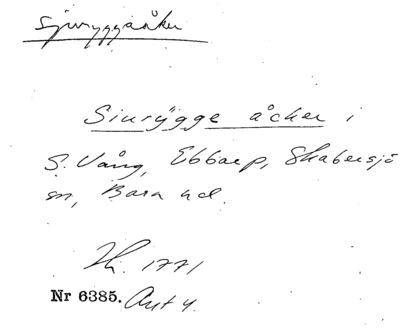 Sjuryggsåker
Siurÿgge åcker i
S. Vång, Ebbarp, Skabersjö
sn, Bara hd.
1771
Nr 6385. Akt 4.